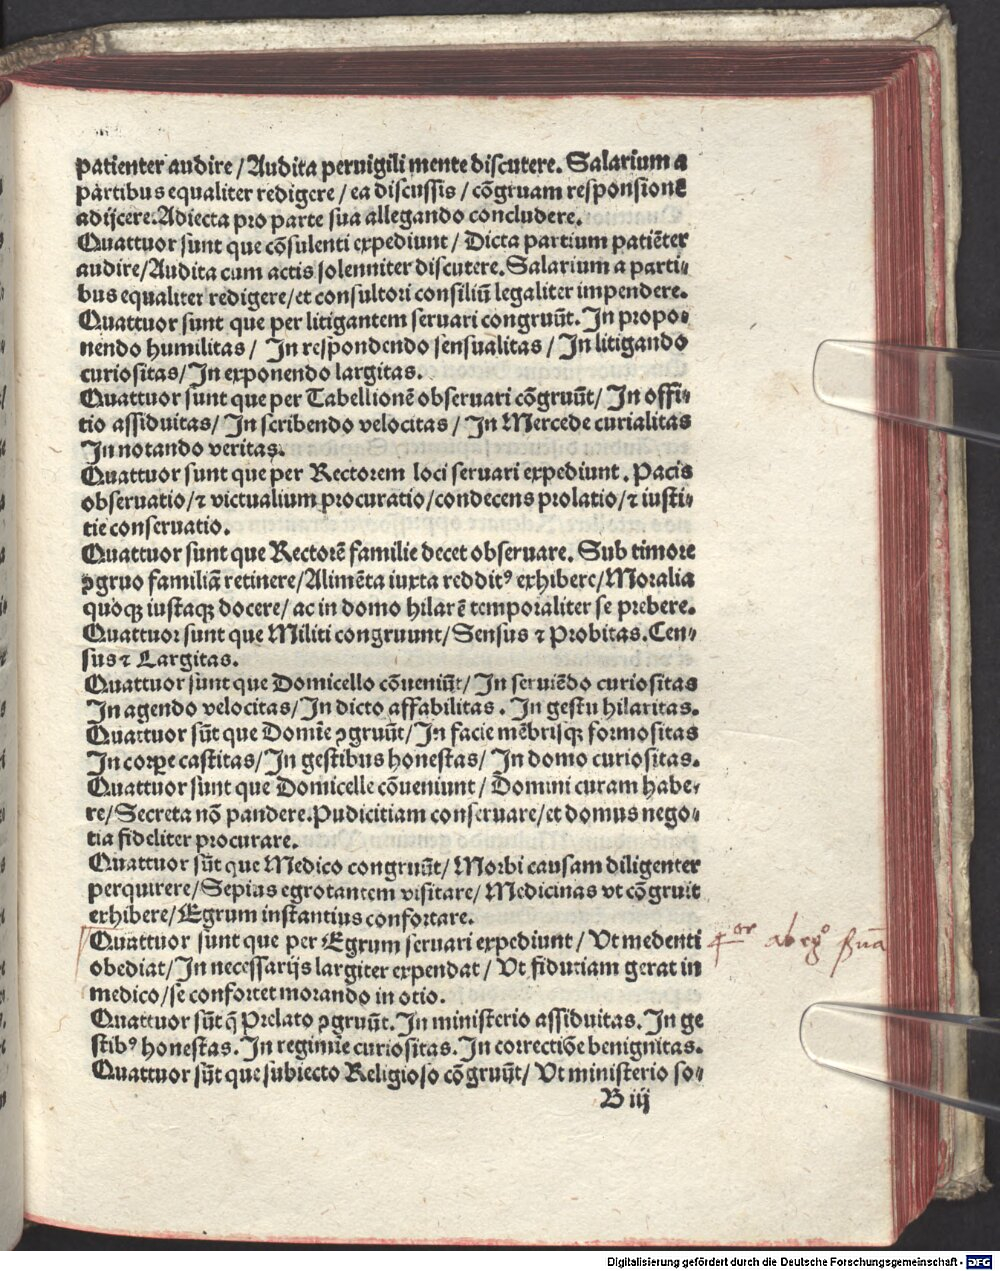 patienter audire / Audita peruigili mente discutere. Salarium a
partibus equaliter redigere / ea discussis / cõgruam responsionẽ
adijcere. Adiecta pro parte sua allegando concludere.
Quattuor sunt que cõsulenti expediunt / Dicta partium patiẽter
audire / Audita cum actis solenniter discutere. Salarium a parti⸗
bus equaliter redigere / et consultori consiliũ legaliter impendere.
Quattuor sunt que per litigantem seruari congruũt. In propo⸗
nendo humilitas / In respondendo sensualitas / In litigando
curiositas / In exponendo largitas.
Quattuor sunt que per Tabellionẽ obseruari cõgruũt / In offi⸗
tio assiduitas / In scribendo velocitas / In Mercede curialitas
In notando veritas.
Quattuor sunt que per Rectorem loci seruari expediunt. Pacis
obseruatio / ⁊ victualium procuratio / condecens prolatio / ⁊ iusti⸗
tie conseruatio.
Quattuor sunt que Rectorẽ familie decet obseruare. Sub timore
ꝯgruo familiã retinere / Alimẽta iuxta redditꝰ exhibere / Moralia
quoqꝫ iustaqꝫ docere / ac in domo hilarẽ temporaliter se prebere.
Quattuor sunt que Militi congruunt / Sensus ⁊ Probitas. Cen⸗
sus ⁊ Largitas.
Quattuor sunt que Domicello cõueniũt / In seruiẽdo curiositas
In agendo velocitas / In dicto affabilitas. In gestu hilaritas.
Quattuor sũt que Domĩe ꝯgruũt / In facie mẽbrisqꝫ formositas
In corꝑe castitas / In gestibus honestas / In domo curiositas.
Quattuor sunt que Domicelle cõueniunt / Domini curam habe⸗
re / Secreta nõ pandere. Pudicitiam conseruare / et domus nego⸗
tia fideliter procurare.
Quattuor sũt que Medico congruũt / Morbi causam diligenter
perquirere / Sepius egrotantem visitare / Medicinas vt cõgruit
exhibere / Egrum instantius confortare.
Quattuor sunt que per Egrum seruari expediunt / Vt medenti
obediat / In necessarijs largiter expendat / Vt fiduciam gerat in
medico / se confortet morando in otio.
Quattuor sũt q̃ Prelato ꝯgruũt. In ministerio assiduitas. In ge
stibꝰ honestas. In regimĩe curiositas. In correctiõe benignitas.
Quattuor sũt que subiecto Religioso cõgruũt / Vt ministerio so⸗
B iij
Digitalisierung gefördert durch die Deutsche Forschungsgemeinschaft - DFG